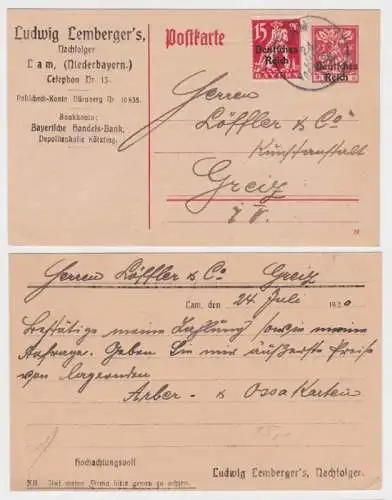 Ludwig Lemberger's,
Nachfolger
Lam, (Niederbayern.)
Telephon Nr 15.
Postscheck-Konto Nürnberg Nr 10 635.
Bankkonto:
Bayerische Handels-Bank,
Depositenkasse Kötzting.
Postkarte
15
Deutsches
Reich
BAYERN
Deutsches
Reich
Herren
Löffler & Co
Kunstanstalt
Greiz
i. V.
Herren Löffler & Co Greiz
Lam, den 24 Juli 1920
Bestätige meine Zahlung sowie meine
Anfrage. Geben Sie mir äußerste Preise
von lagernden
Arber- & Ossa Karten
Hochachtungsvoll
Ludwig Lemberger's, Nachfolger.
NB. Auf meine Firma bitte genau zu achten.